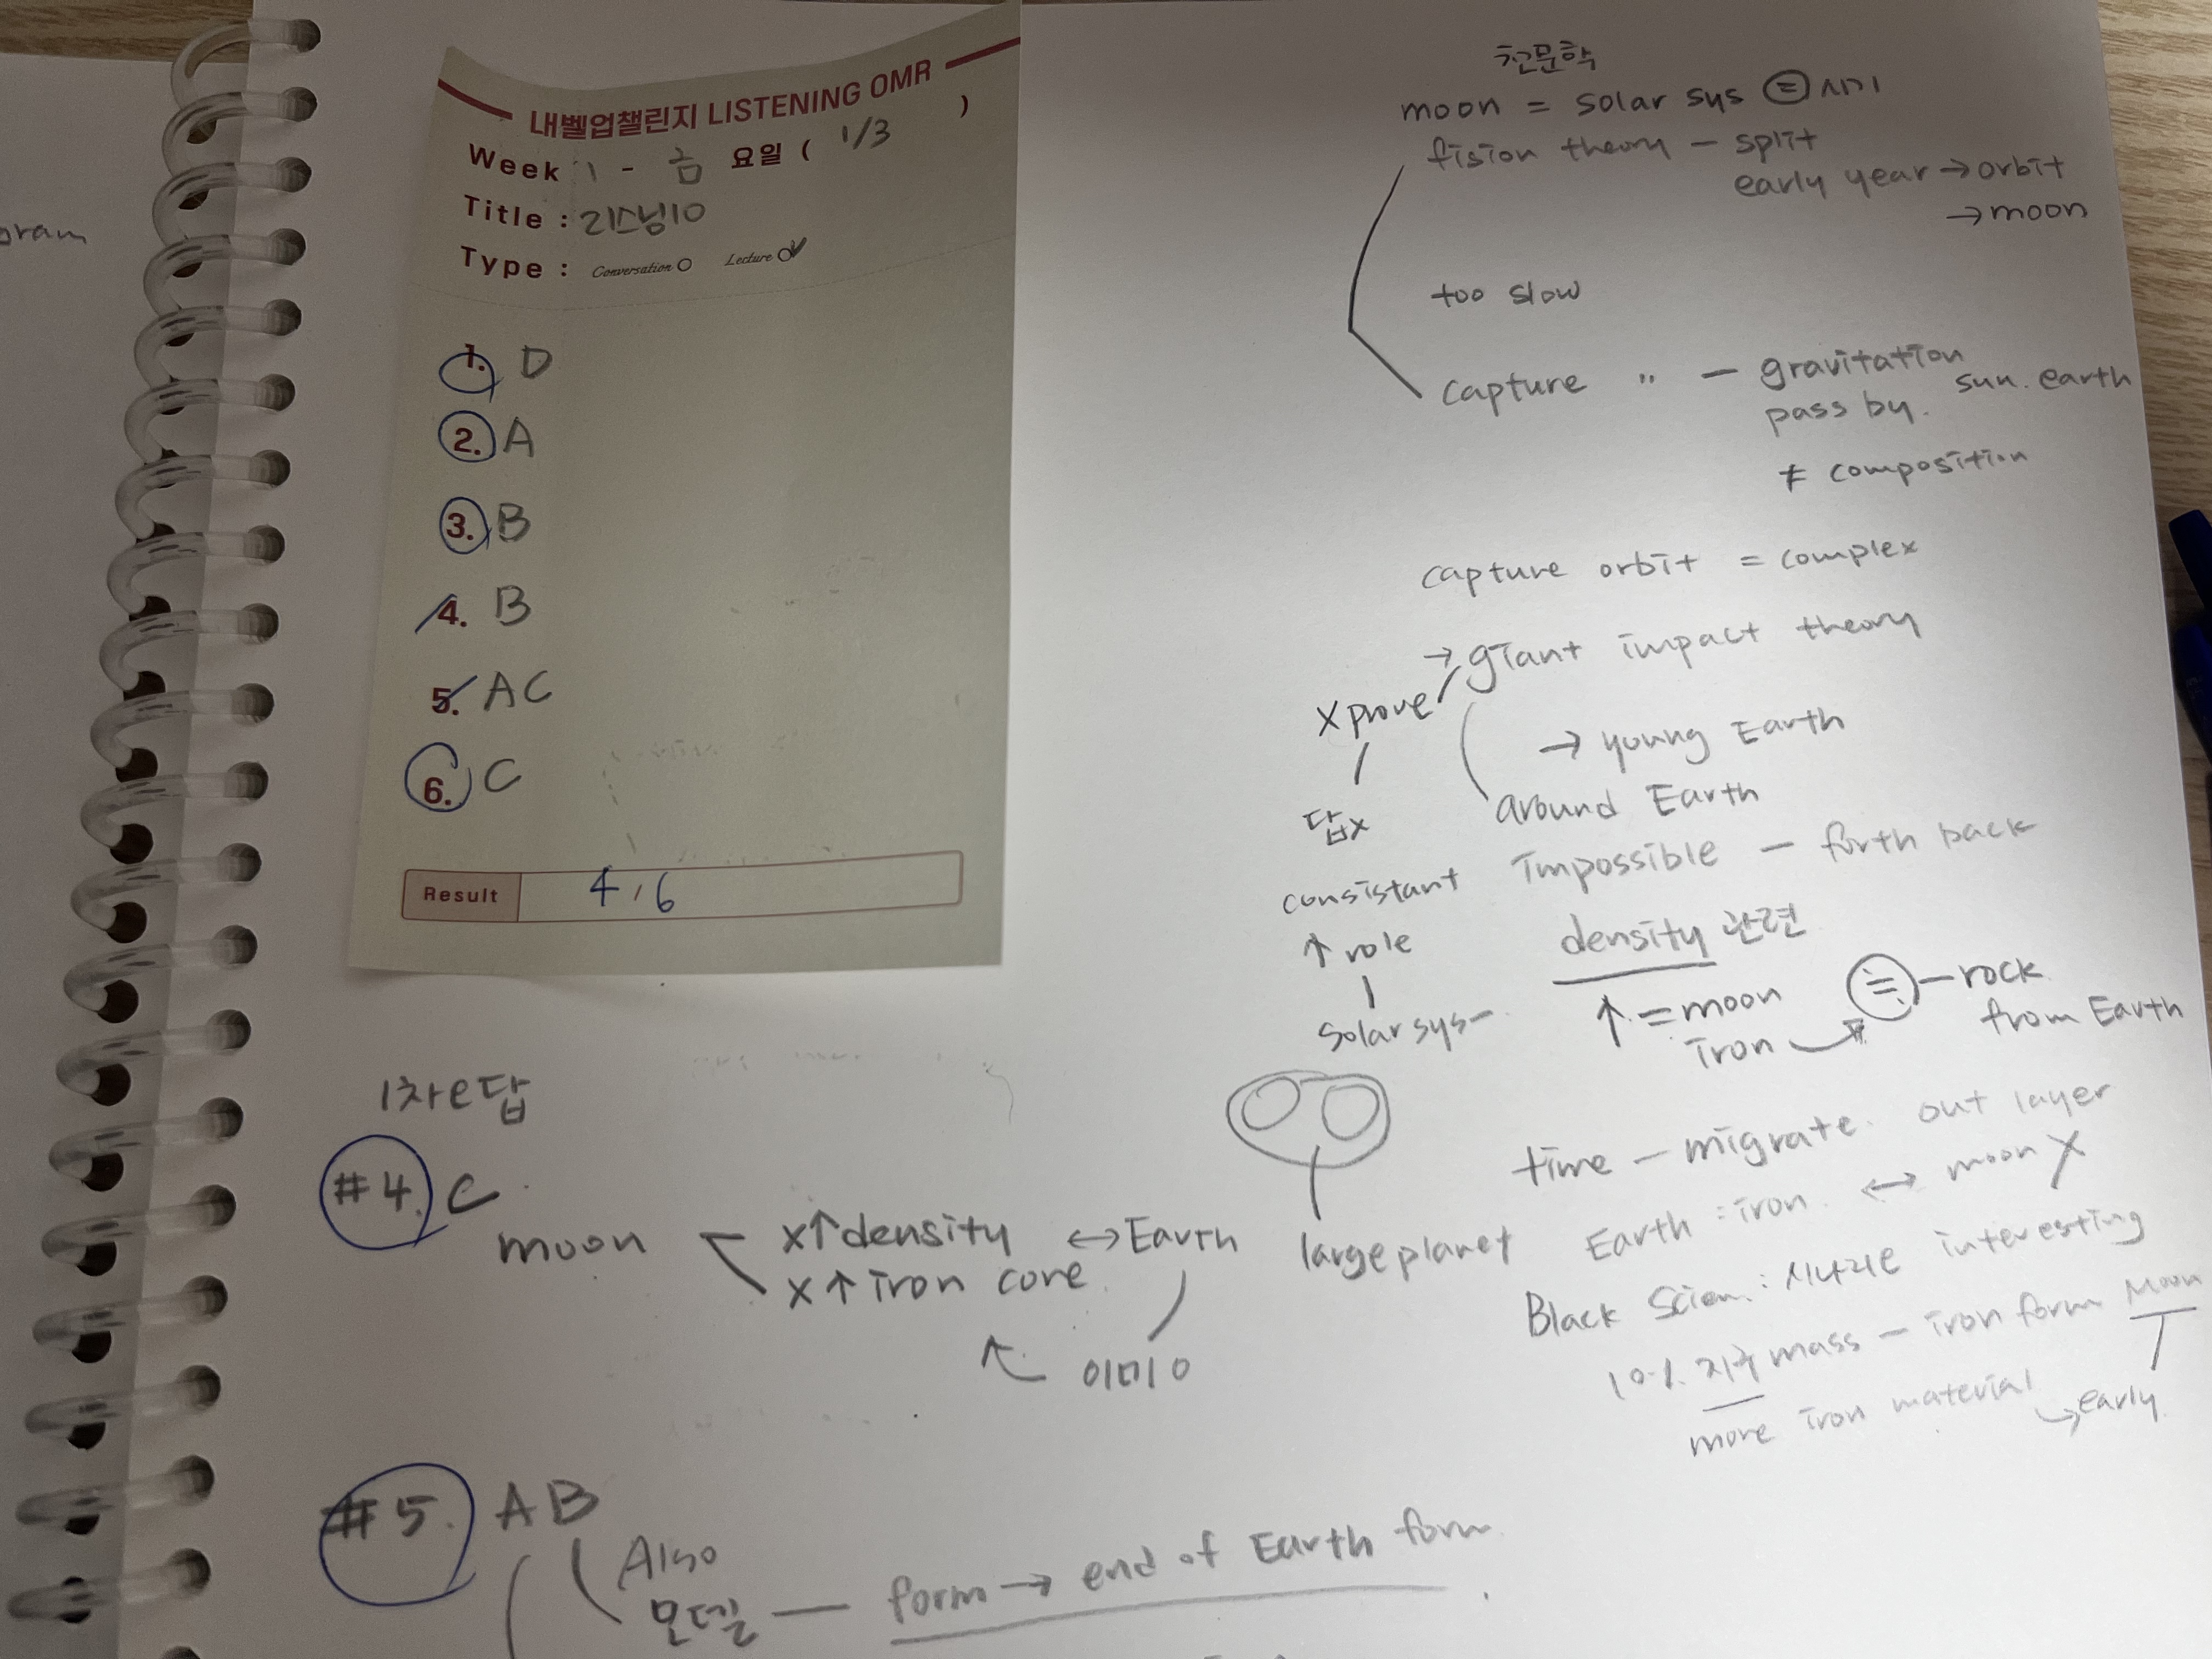 gram
내벨업챌린지 LISTENING OMR
Week 1 - 금 요일 ( 1/3 )
Title : 리스닝10
Type : Conversation Lecture
1. D
2. A
3. B
4. B
5. AC
6. C
Result 4 / 6
천문학
moon = solar sys = 시기
fision theory - split
early year → orbit
→ moon
too slow
capture " - gravitation
sun. earth
pass by.
≠ composition
capture orbit = complex
→ giant impact theory
X prove
→ young Earth
답x
around Earth
consistant impossible - forth back
↑ role
density 관련
Solar sys-
↑ = moon
iron
rock
from Earth
time - migrate. out layer
Earth : iron. ↔ moon X
interesting
10%. 지구 mass - iron form Moon
more iron material → early.
1차e답
#4. C
moon
x↑ density ↔ Earth large planet
x ↑ iron core
이미 0
#5. AB
Also
모델 - form → end of Earth form.